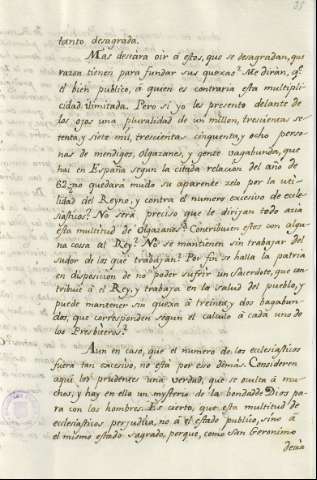 35
tanto desagrada.
Mas deseára oir á estos, que se desagradan, que
razon tienen para fundar sus quexas? Me diran, qe
el bien publico, á quien es contraria esta multipli-
cidad ilimitada. Pero si yo les presento delante de
los ojos una pluralidad de un millon, trescientas se-
tenta, y siete mil, trescientas cinquenta, y ocho perso-
nas de mendigos, olgazanes, y gente vagabunda, que
hai en España segun la citada relacion del año de
62, no quedará mudo su aparente zelo por la uti-
lidad del Reyno, y contra el numero excesivo de ecle-
siasticos? No será preciso que le dirijan todo azia
esta multitud de olgazanes? Contribuien estos con algu-
na cosa al Rey? No se mantienen sin trabajar del
sudor de los que trabajan? Por fin se halla la patria
en disposicion de no poder sufrir un Sacerdote, que con-
tribuie á el Rey, y trabaja en la salud del pueblo, y
puede mantener sin quexa á treinta, y dos bagabun-
dos, que corresponden segun el calculo á cada uno de
los Presbiteros?
Aun en caso, que el numero de los eclesiasticos
fuera tan excesivo, no está por eso demás. Consideren
aqui los prudentes una verdad, que se oculta á mu-
chos, y hay en ella un mysterio de la bondad de Dios pa-
ra con los hombres. Es cierto, que esta multitud de
eclesiasticos perjudica, no á el estado publico, sino á
el mismo estado sagrado, porque, como San Geronimo